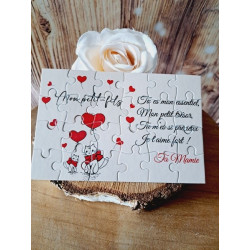 Mon petit fils
Tu es mon essentiel,
Mon petit trésor,
Tu m'es si précieux
Je t'aime fort !
Ta Mamie